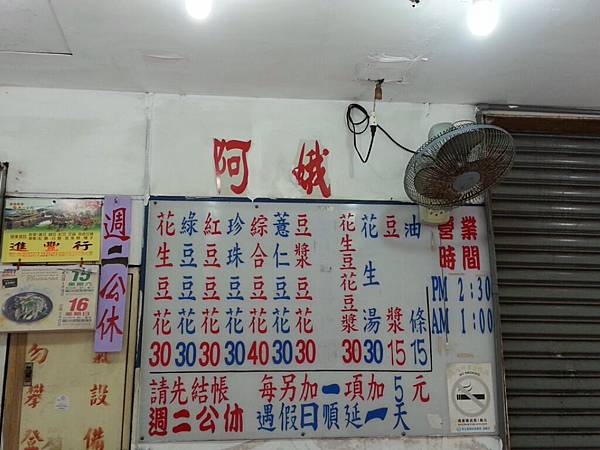 阿娥
花生豆花 30
綠豆豆花 30
紅豆豆花 30
珍珠豆花 30
綜合豆花 40
薏仁豆花 30
豆漿豆花 30
花生豆花豆漿 30
花生湯 30
豆漿 15
油條 15
營業時間
PM 2:30
AM 1:00
請先結帳 每另加一項加5元
週二公休 遇假日順延一天
週二公休
進豐行
15
16
勿攀登
設備